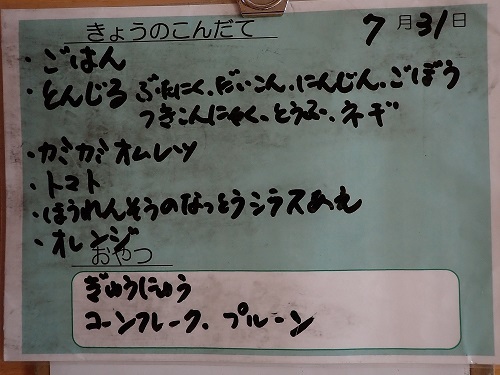 きょうのこんだて 7月31日
・ごはん
・とんじる ぶたにく、だいこん、にんじん、ごぼう
つきこんにゃく、とうふ、ネギ
・カミカミオムレツ
・トマト
・ほうれんそうのなっとうシラスあえ
・オレンジ
おやつ
ぎゅうにゅう
コーンフレーク、プルーン